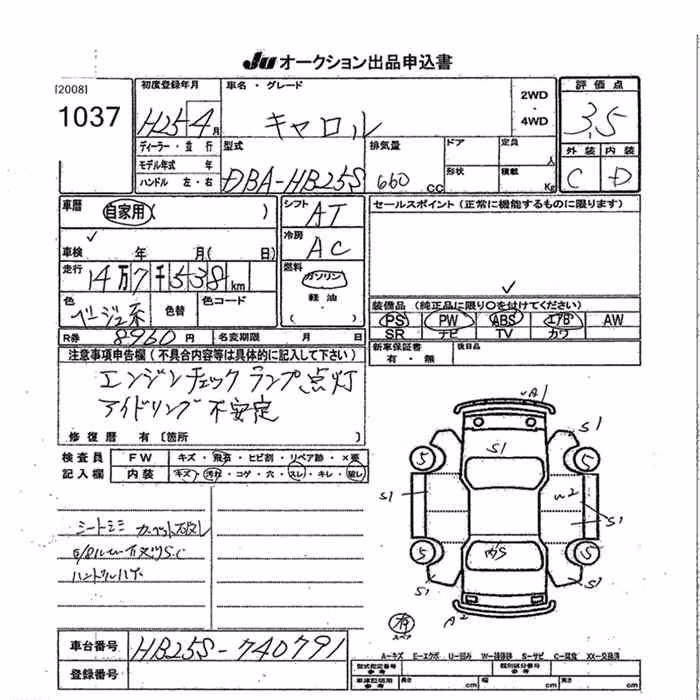 JU オークション出品申込書
[2008]
1037
初度登録年月
H25-4月
車名・グレード
キャロル
2WD
・
4WD
評価点
3.5
外装 内装
C D
ディーラー・並行
モデル年式 年
ハンドル 左・右
型式
DBA-HB25S
排気量
660 CC
ドア
定員
人
形状
積載
Kg
車歴
自家用( )
シフト
AT
冷房
AC
セールスポイント(正常に機能するものに限ります)
車検 年 月( 日)
走行 14万7千538km
燃料
ガソリン
軽油
色
ベージュ系
色替
色コード
装備品(純正品に限り○を付けてください)
PS PW ABS エアB AW
SR ナビ TV カワ
R券 8960円
名変期限 月 日
新車保証書
有・無
後日品
注意事項申告欄(不具合内容等は具体的に記入して下さい)
エンジンチェックランプ点灯
アイドリング不安定
修復歴 有〔箇所 〕
検査員
記入欄
FW キズ・飛石・ヒビ割・リペア跡・×要
内装 キズ・汚れ・コゲ・穴・スレ・キレ・破レ
シートシミ カーペット破レ
ハンドルハゲ
A1
S1
S1
5
5
S1
W2
S1
5
5
S1
S1
A2
車台番号
HB25S-740791
登録番号
A-キズ E-エクボ U-凹み W-補修跡 S-サビ C-腐食 XX-交換済
型式指定番号
参考
類別区分番号
参考
車庫証明用
参考
長さ cm
幅 cm
高さ cm